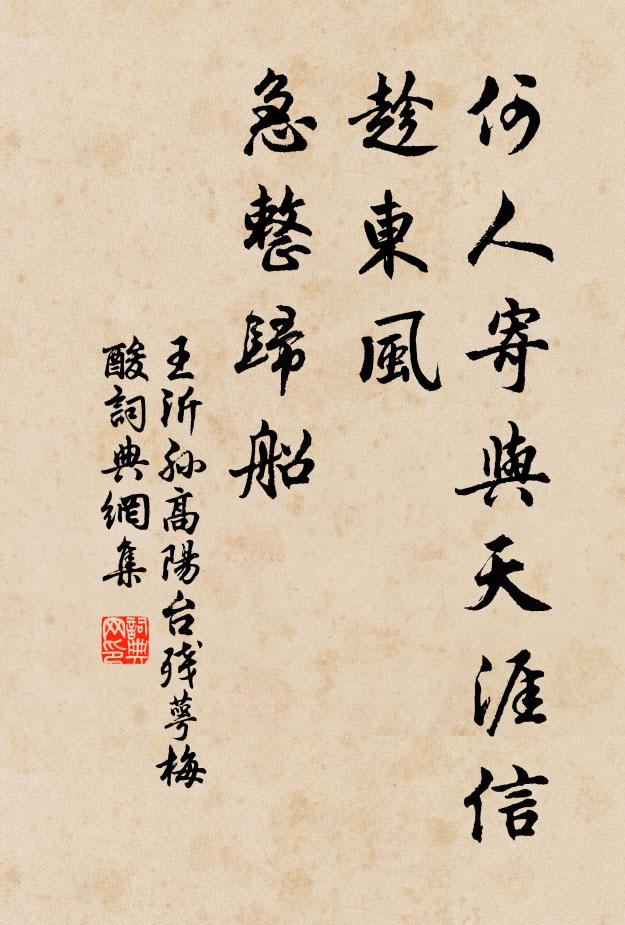 何人寄與天涯信
趁東風
急整歸船
王沂孙高陽台残萼梅
酸詞典網集
詞典
网印